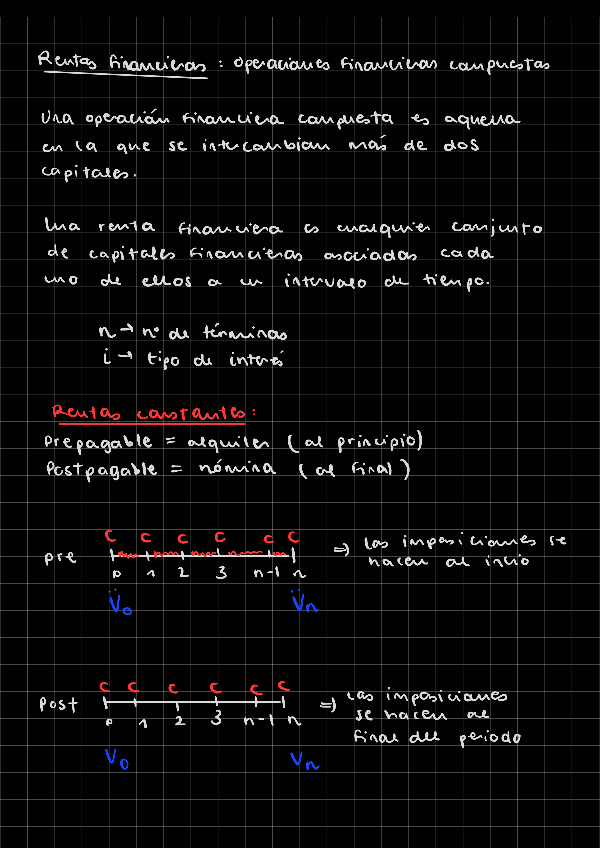 Rentas financieras : operaciones financieras compuestas
Una operación financiera compuesta es aquella
en la que se intercambian más de dos
capitales.
Una renta financiera es cualquier conjunto
de capitales financieros asociados cada
uno de ellos a un intervalo de tiempo.
n → nº de términos
i → tipo de interés
Rentas constantes :
Prepagable = alquiler ( al principio)
Postpagable = nómina ( al final )
C C C C C C
pre
0 1 2 3 n-1 n
⇒ Las imposiciones se
hacen al inicio
V̈0 V̈n
C C C C C C
post
0 1 2 3 n-1 n
⇒ Las imposiciones
se hacen al
final del periodo
V0 Vn